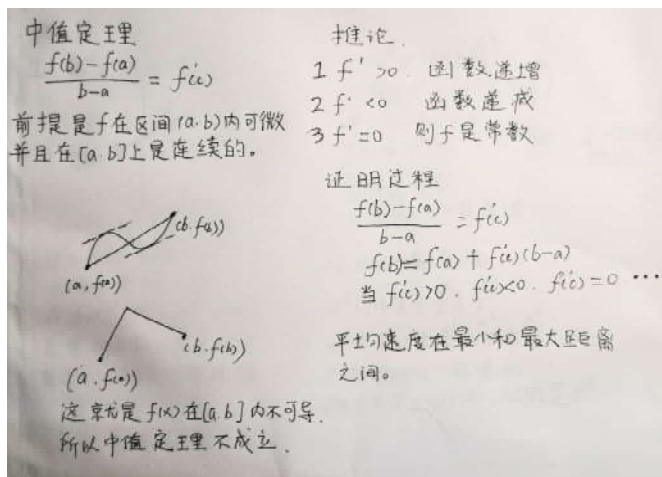 中值定理
f(b)-f(a)
b-a
= f'(c)
前提是f在区间(a.b)内可微
并且在[a.b]上是连续的。
(b.f(b))
(a,f(a))
(b.f(b))
(a.f(a))
这就是f(x)在[a.b]内不可导.
所以中值定理不成立.
推论.
1 f' >0. 函数递增
2 f' <0 函数递减
3 f'=0 则f是常数
证明过程
f(b)-f(a)
b-a
= f'(c)
f(b)=f(a)+f'(c)(b-a)
当f'(c)>0. f'(c)<0. f'(c)=0 ...
平均速度在最小和最大距离
之间。